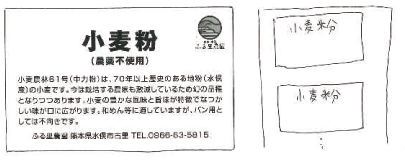 小麦粉
(農薬不使用)
小麦農林61号(中力粉)は、70年以上歴史のある地粉(水俣
産)の小麦です。今は栽培する農家も激減しているため幻の品種
となりつつあります。小麦の豊かな風味と旨味が特徴でなつか
しい味が口に広がります。和めん等に適していますが、パン用と
しては不向きです。
ふる里農園 熊本県水俣市古里 TEL.0966-63-5815
小麦粉
小麦粉